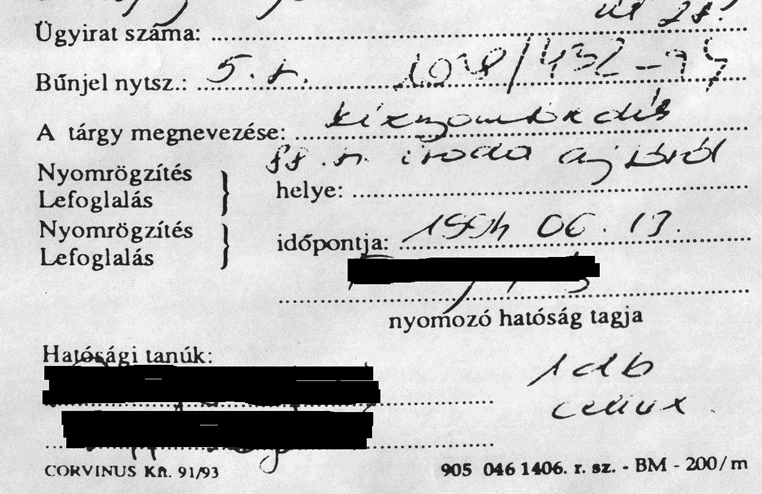 út 28.
Ügyirat száma:
Bűnjel nytsz.: 5. sz. 1078/432-94
A tárgy megnevezése: kéznyomtöredék
Nyomrögzítés
Lefoglalás
ff. sz. iroda ajtóról
helye:
Nyomrögzítés
Lefoglalás
időpontja: 1994 06. 13.
nyomozó hatóság tagja
Hatósági tanúk:
1 db
cellux.
CORVINUS Kft. 91/93
905 046 1406. r. sz. - BM - 200/m